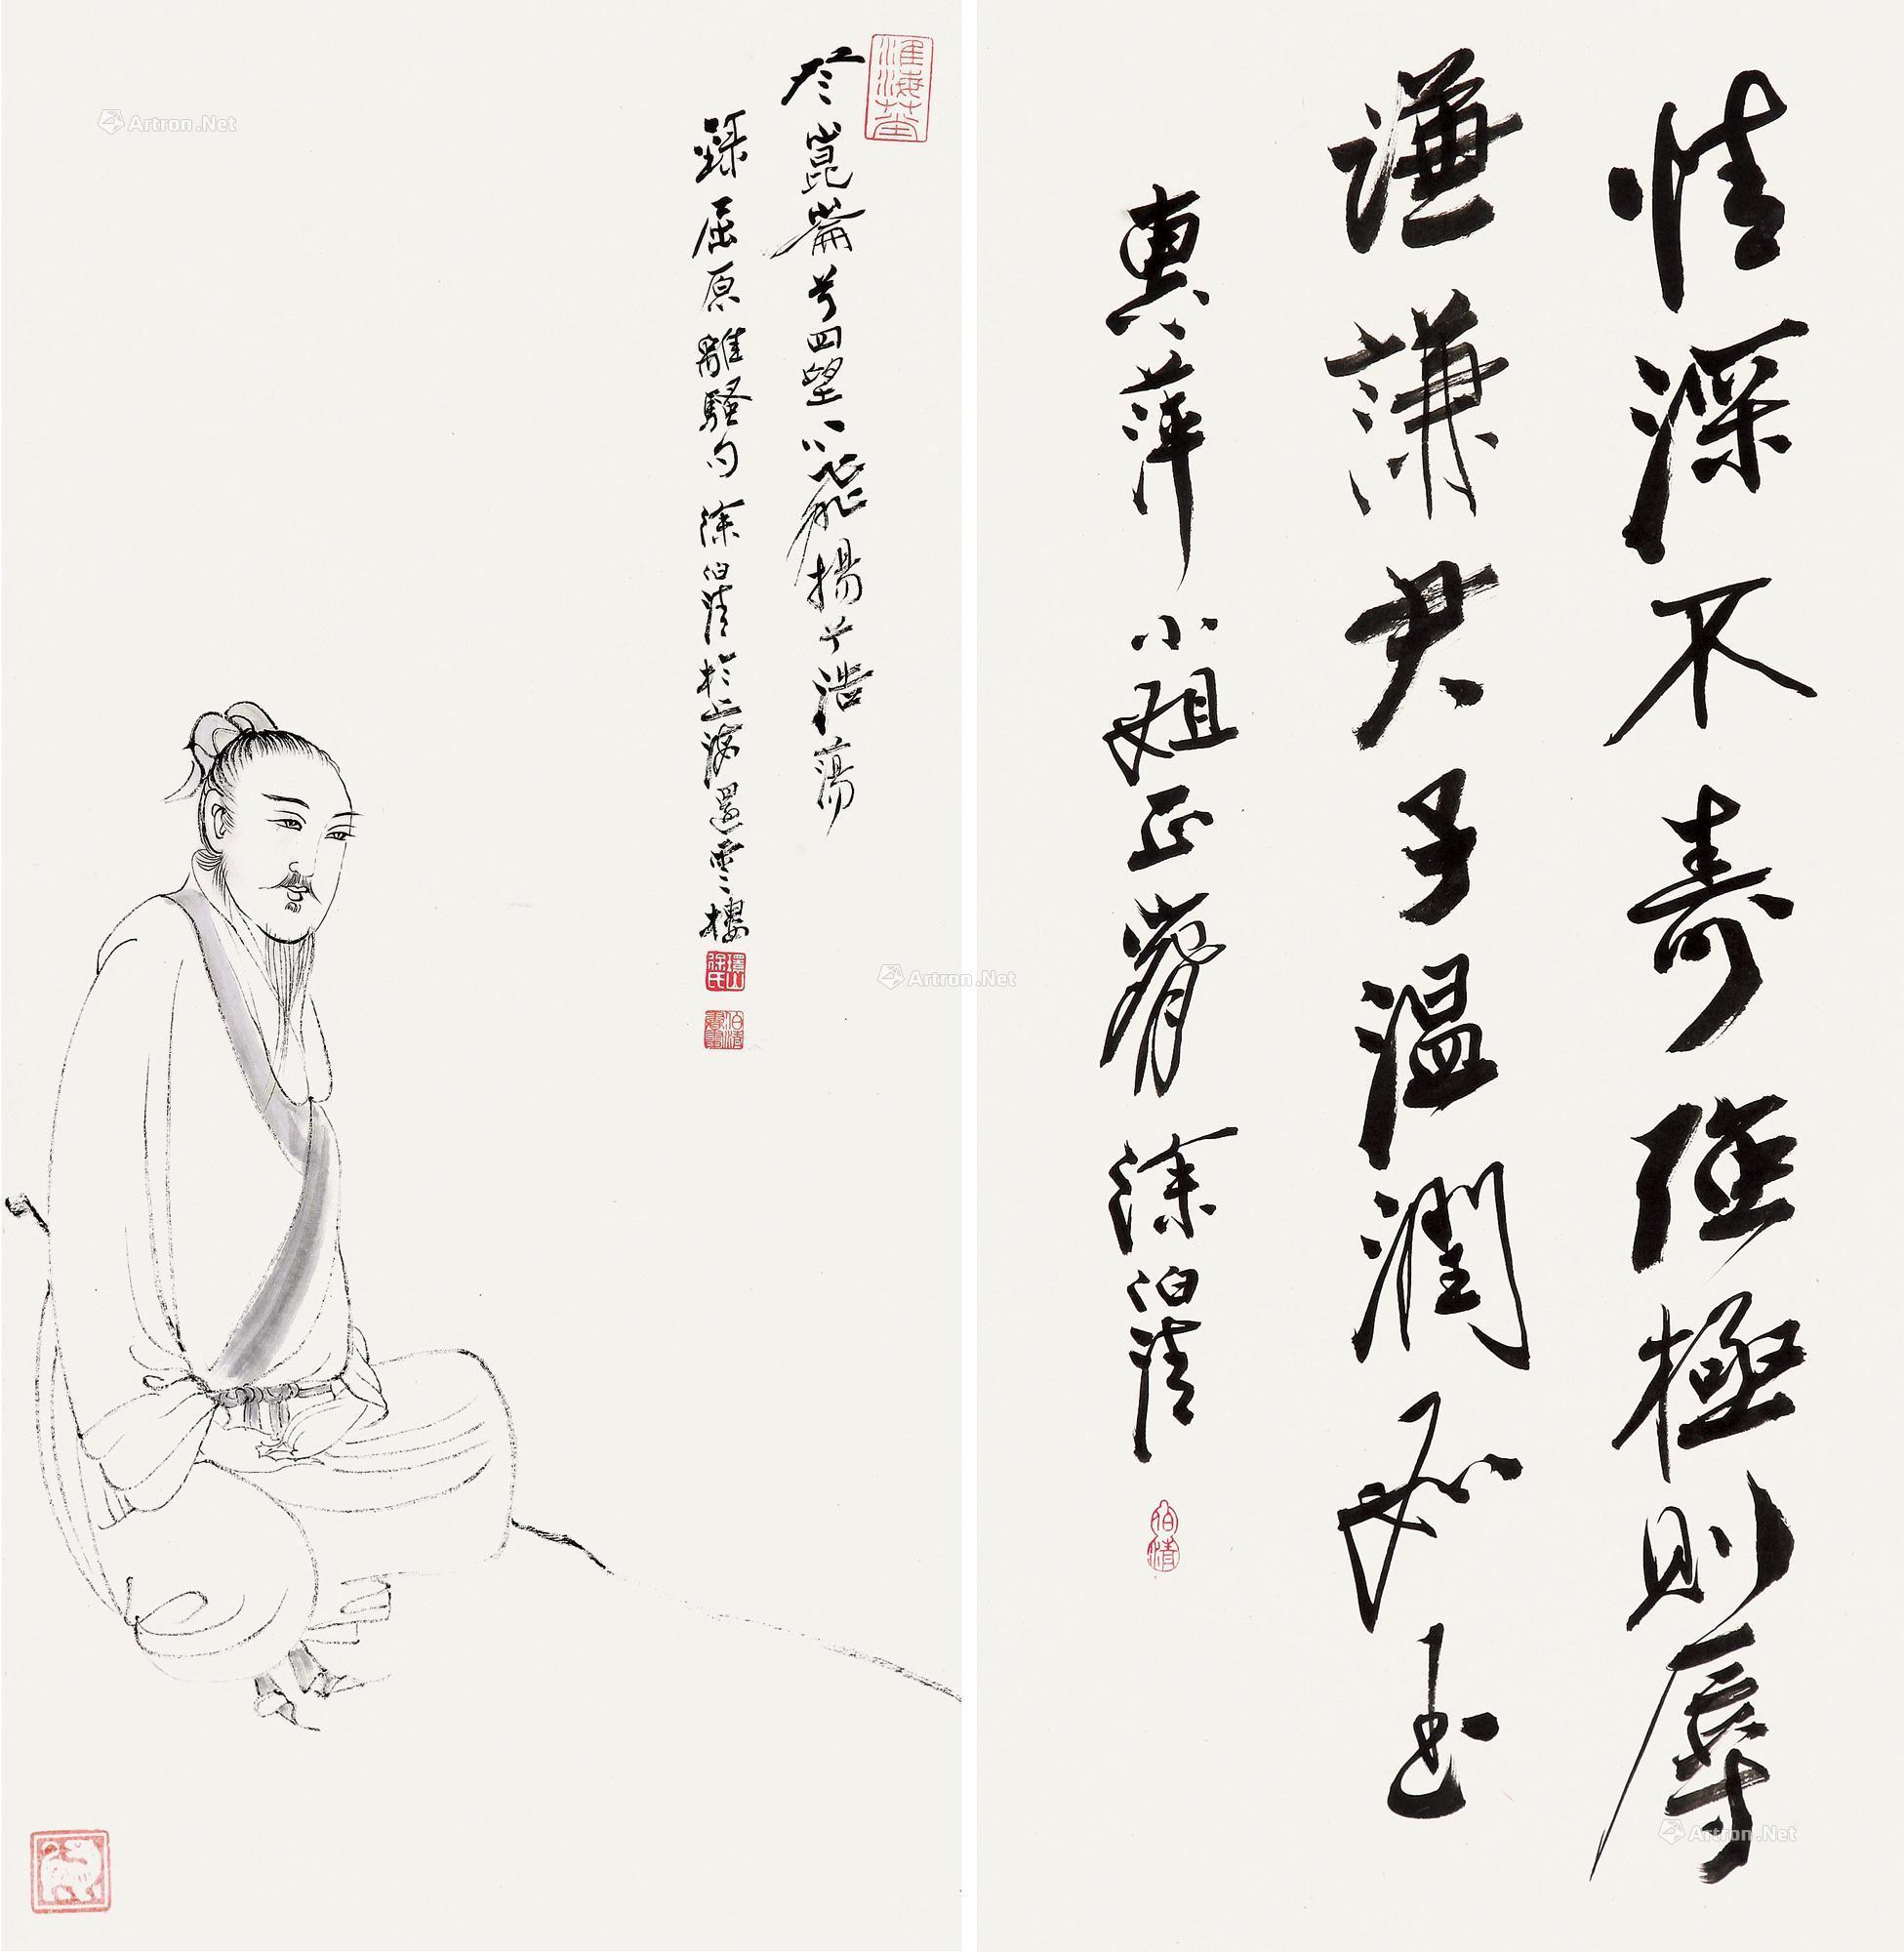 情深不壽強極則辱
謙謙君子溫潤如玉
惠萍小姐正腕
徐伯清
伯清
登崑崙兮四望心飛揚兮浩蕩
錄屈原離騷句徐伯清於上海還雲樓
伯清
Artron.Net
Artron.Net
Artron.Net